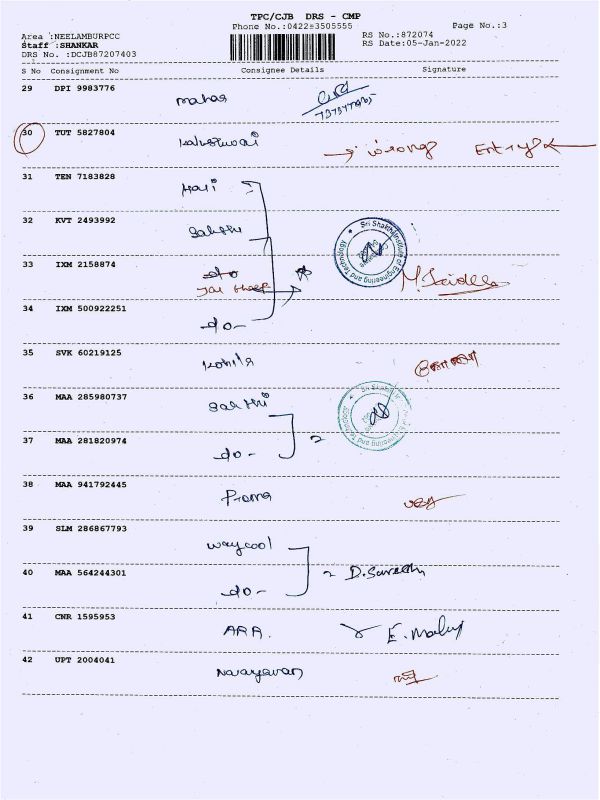 TPC/CJB DRS - CMP
Phone No.:0422=3505555
Page No.:3
Area :NEELAMBURPCC
Staff :SHANKAR
DRS No. :DCJB87207403
RS No.:872074
RS Date:05-Jan-2022
S No Consignment No Consignee Details Signature
29 DPI 9983776
30 TUT 5827804
wrong Entry
31 TEN 7183828
Hari
32 KVT 2493992
Sakthi
33 IXM 2158874
do
34 IXM 500922251
do-
35 SVK 60219125
Kohila
36 MAA 285980737
Sakthi
37 MAA 281820974
do-
2
38 MAA 941792445
39 SLM 286867793
waycool
40 MAA 564244301
do-
D.Suresh
41 CNR 1595953
ARA.
42 UPT 2004041
Narayanan